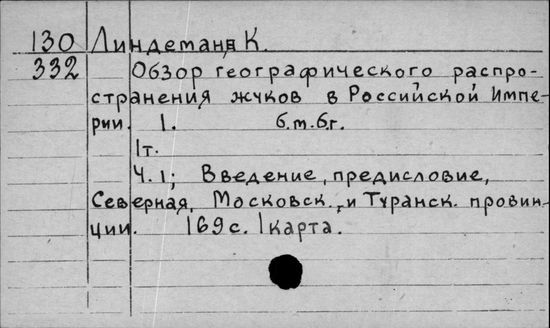 130 Линдеманн К.
332 Обзор географического распро-
странения жуков в Российской Импе-
рии. 1. б.м.б.г.
1т.
Ч.1; Введение, предисловие,
Северная, Московск., и Туранск. провин-
ции. 169с. 1карта.